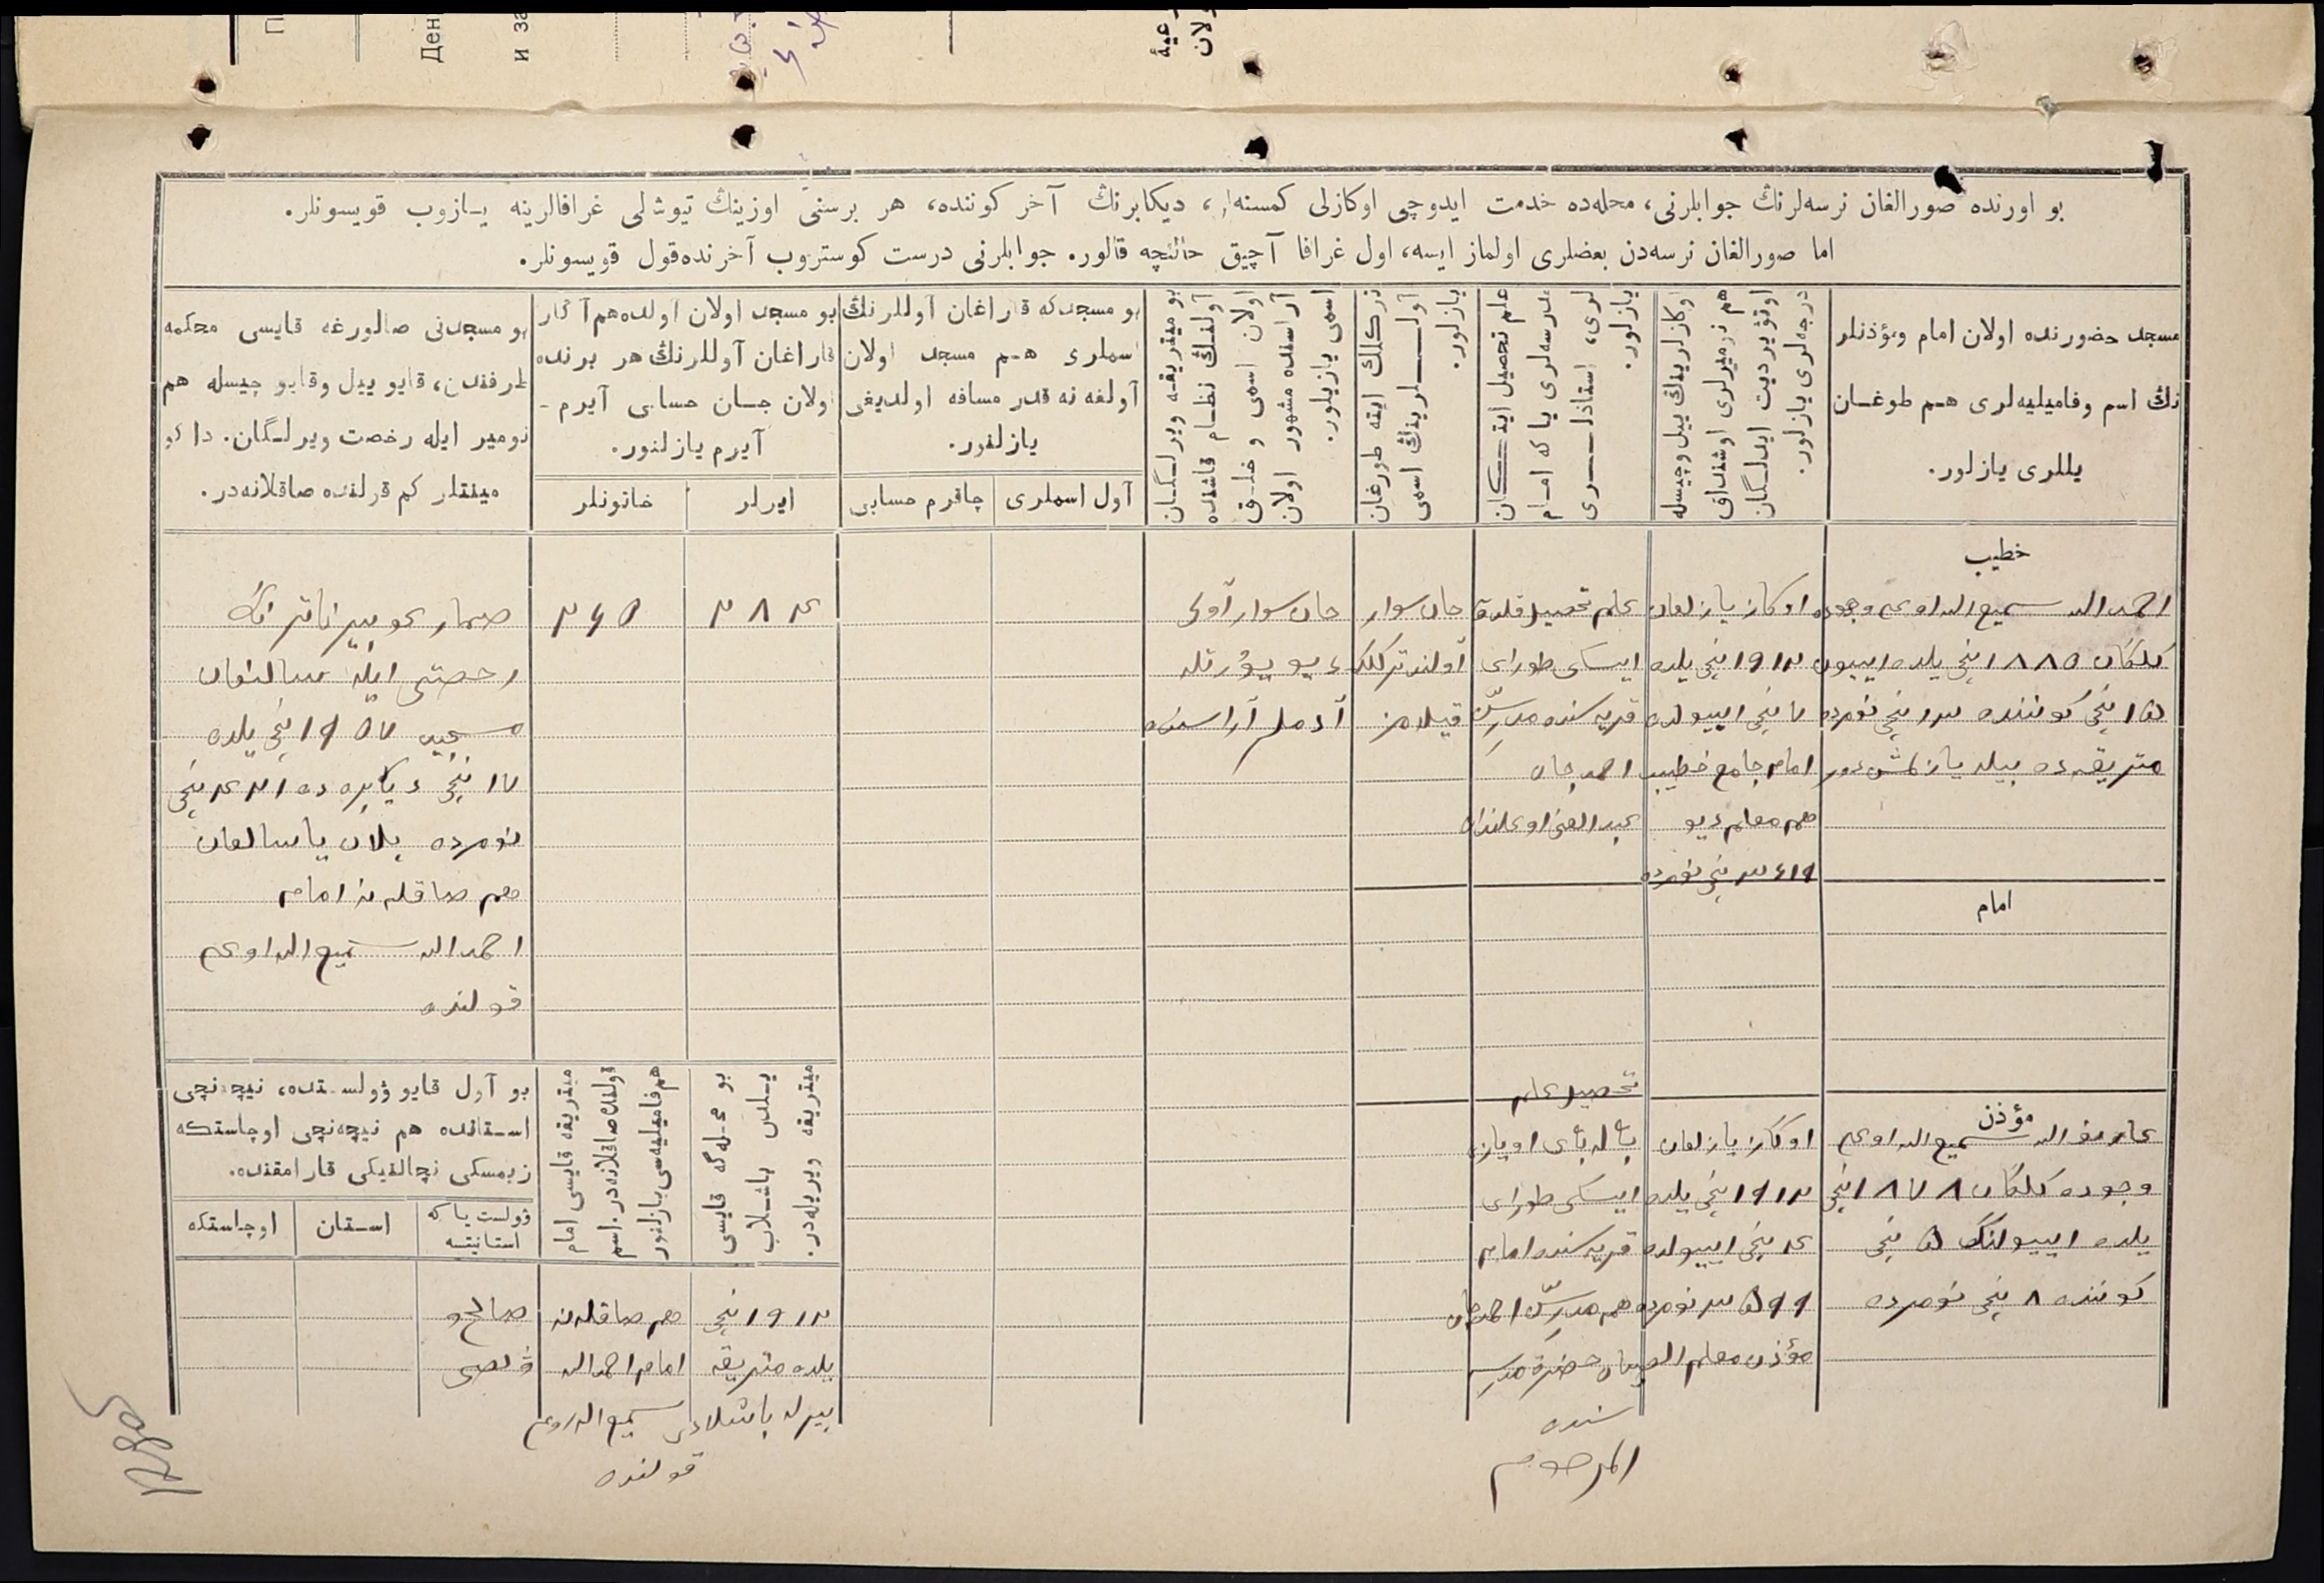 بو اورنده صورالغان نرسه‌لرنڭ جوابلرنی، محله‌ده خدمت ایدوچی اوکازلی کمسنه‌لر، دیکابرنڭ آخر کوننده، هر برسنی اوزینڭ تیوشلی غرافالرینه یازوب قویسونلر.
اما صورالغان نرسه‌دن بعضلری اولماز ایسه، اول غرافا آچیق حالنچه قالور. جوابلرنی درست کوستروب آخرنده قول قویسونلر.
مسجد حضورنده اولان امام ومؤذنلر
نڭ اسم وفامیلیه‌لری هم طوغان
یللری یازلور.
اوکازلرینڭ ییل وچیسله
هم نومیرلری اوشنداق
اوتؤیردیت ایدلگان
درجه‌لری یازلور.
علم تحصیل ایتکان
مدرسه‌لری یا که امام
لری، استاذلری
یازلور.
نرکلك ایته طورغان
آوللرینڭ اسمی
یازلور.
بو میتریقه ویرلگان
آولنڭ نظام قاشنده
اولان اسمی و خلق
آراسنده مشهور اولان
اسمی یازیلور.
بو مسجدکه قاراغان آوللرنڭ
اسملری هم مسجد اولان
آولغه نه قدر مسافه اولدیغی
یازلنور.
آول اسملری
چاقرم حسابی
بو مسجد اولان اولده هم آڭار
قاراغان آوللرنڭ هر برنده
اولان جان حسابی آیرم -
آیرم یازلنور.
ایرلر
خاتونلر
بو مسجدنی صالورغه قایسی محکمه
طرفندن، قایو ییل وقایو چیسله هم
نومیر ایله رخصت ویرلگان. داکو
مینتلر کم قولنده صاقلانه‌در.
خطیب
احمدالله سمیع الله اوغلی وجوده
کلکان ۱۸۸۵ نچی یلده اییون
۱۵ نچی کوننده ۱۳ نچی نومرده
متریقه‌ده بیله یازلمش‌دور
اوکاز یازلغان
۱۹۱۲ نچی یلده
۷ نچی اییولده
امام جامع خطیب
هم معلم دیو
۳۴۱۹ نچی نومرده
علم تحصیل قلدق
ایسکی طورای
قریه سنده مدرس
احمدجان
عبدالغنی اوغلندان
جان سوار
آولنده ترکلك
قیلامز
جان سوار آولی
دیو یؤرتله
آدملر آراسنده
۲۸۴
۲۶۵
صمار غوبیرناترنڭ
رخصتی ایله سالنغان
مسجد ۱۹۰۷ نچی یلده
۱۷ نچی دیکابرده
نومرده پلان یاسالغان
هم صاقله‌نه امام
احمدالله سمیع الله اوغلی
قولنده
امام
مؤذن
سمیع الله اوغلی
وجوده کلکان ۱۸۷۸ نچی
یلده اییولنڭ ۵ نچی
کوننده ۸ نچی نومرده
اوکاز یازلغان
۱۹۱۲ نچی یلده
۴ نچی اییولده
۳۵۹۹ نومرده
مؤذن معلم الصبیان
تحصیل علم
ایسکی طورای
قریه سنده امام
هم مدرس احمدجان
حضرة مدرسه
سنده
المرحوم
بو آول قایو ۋولستده، نیچه‌نچی
استانده هم نیچه‌نچی اوچاستکه
زیمسکی نچالنیکی قارامقنده.
ۋولست یا که
استانیتسه
استان
اوچاستکه
متریقه قایسی امام
قولنده صاقلانه‌در. اسم
هم فامیلیه‌سی یازلنور
بو محله‌گه قایسی
یلدن باشلاب
میتریقه ویریله‌در.
۱۹۱۲ نچی
یلده متریقه
بیرله باشلادی
هم صاقله‌نه
امام احمدالله
سمیع الله اوغلی
قولنده
صالح